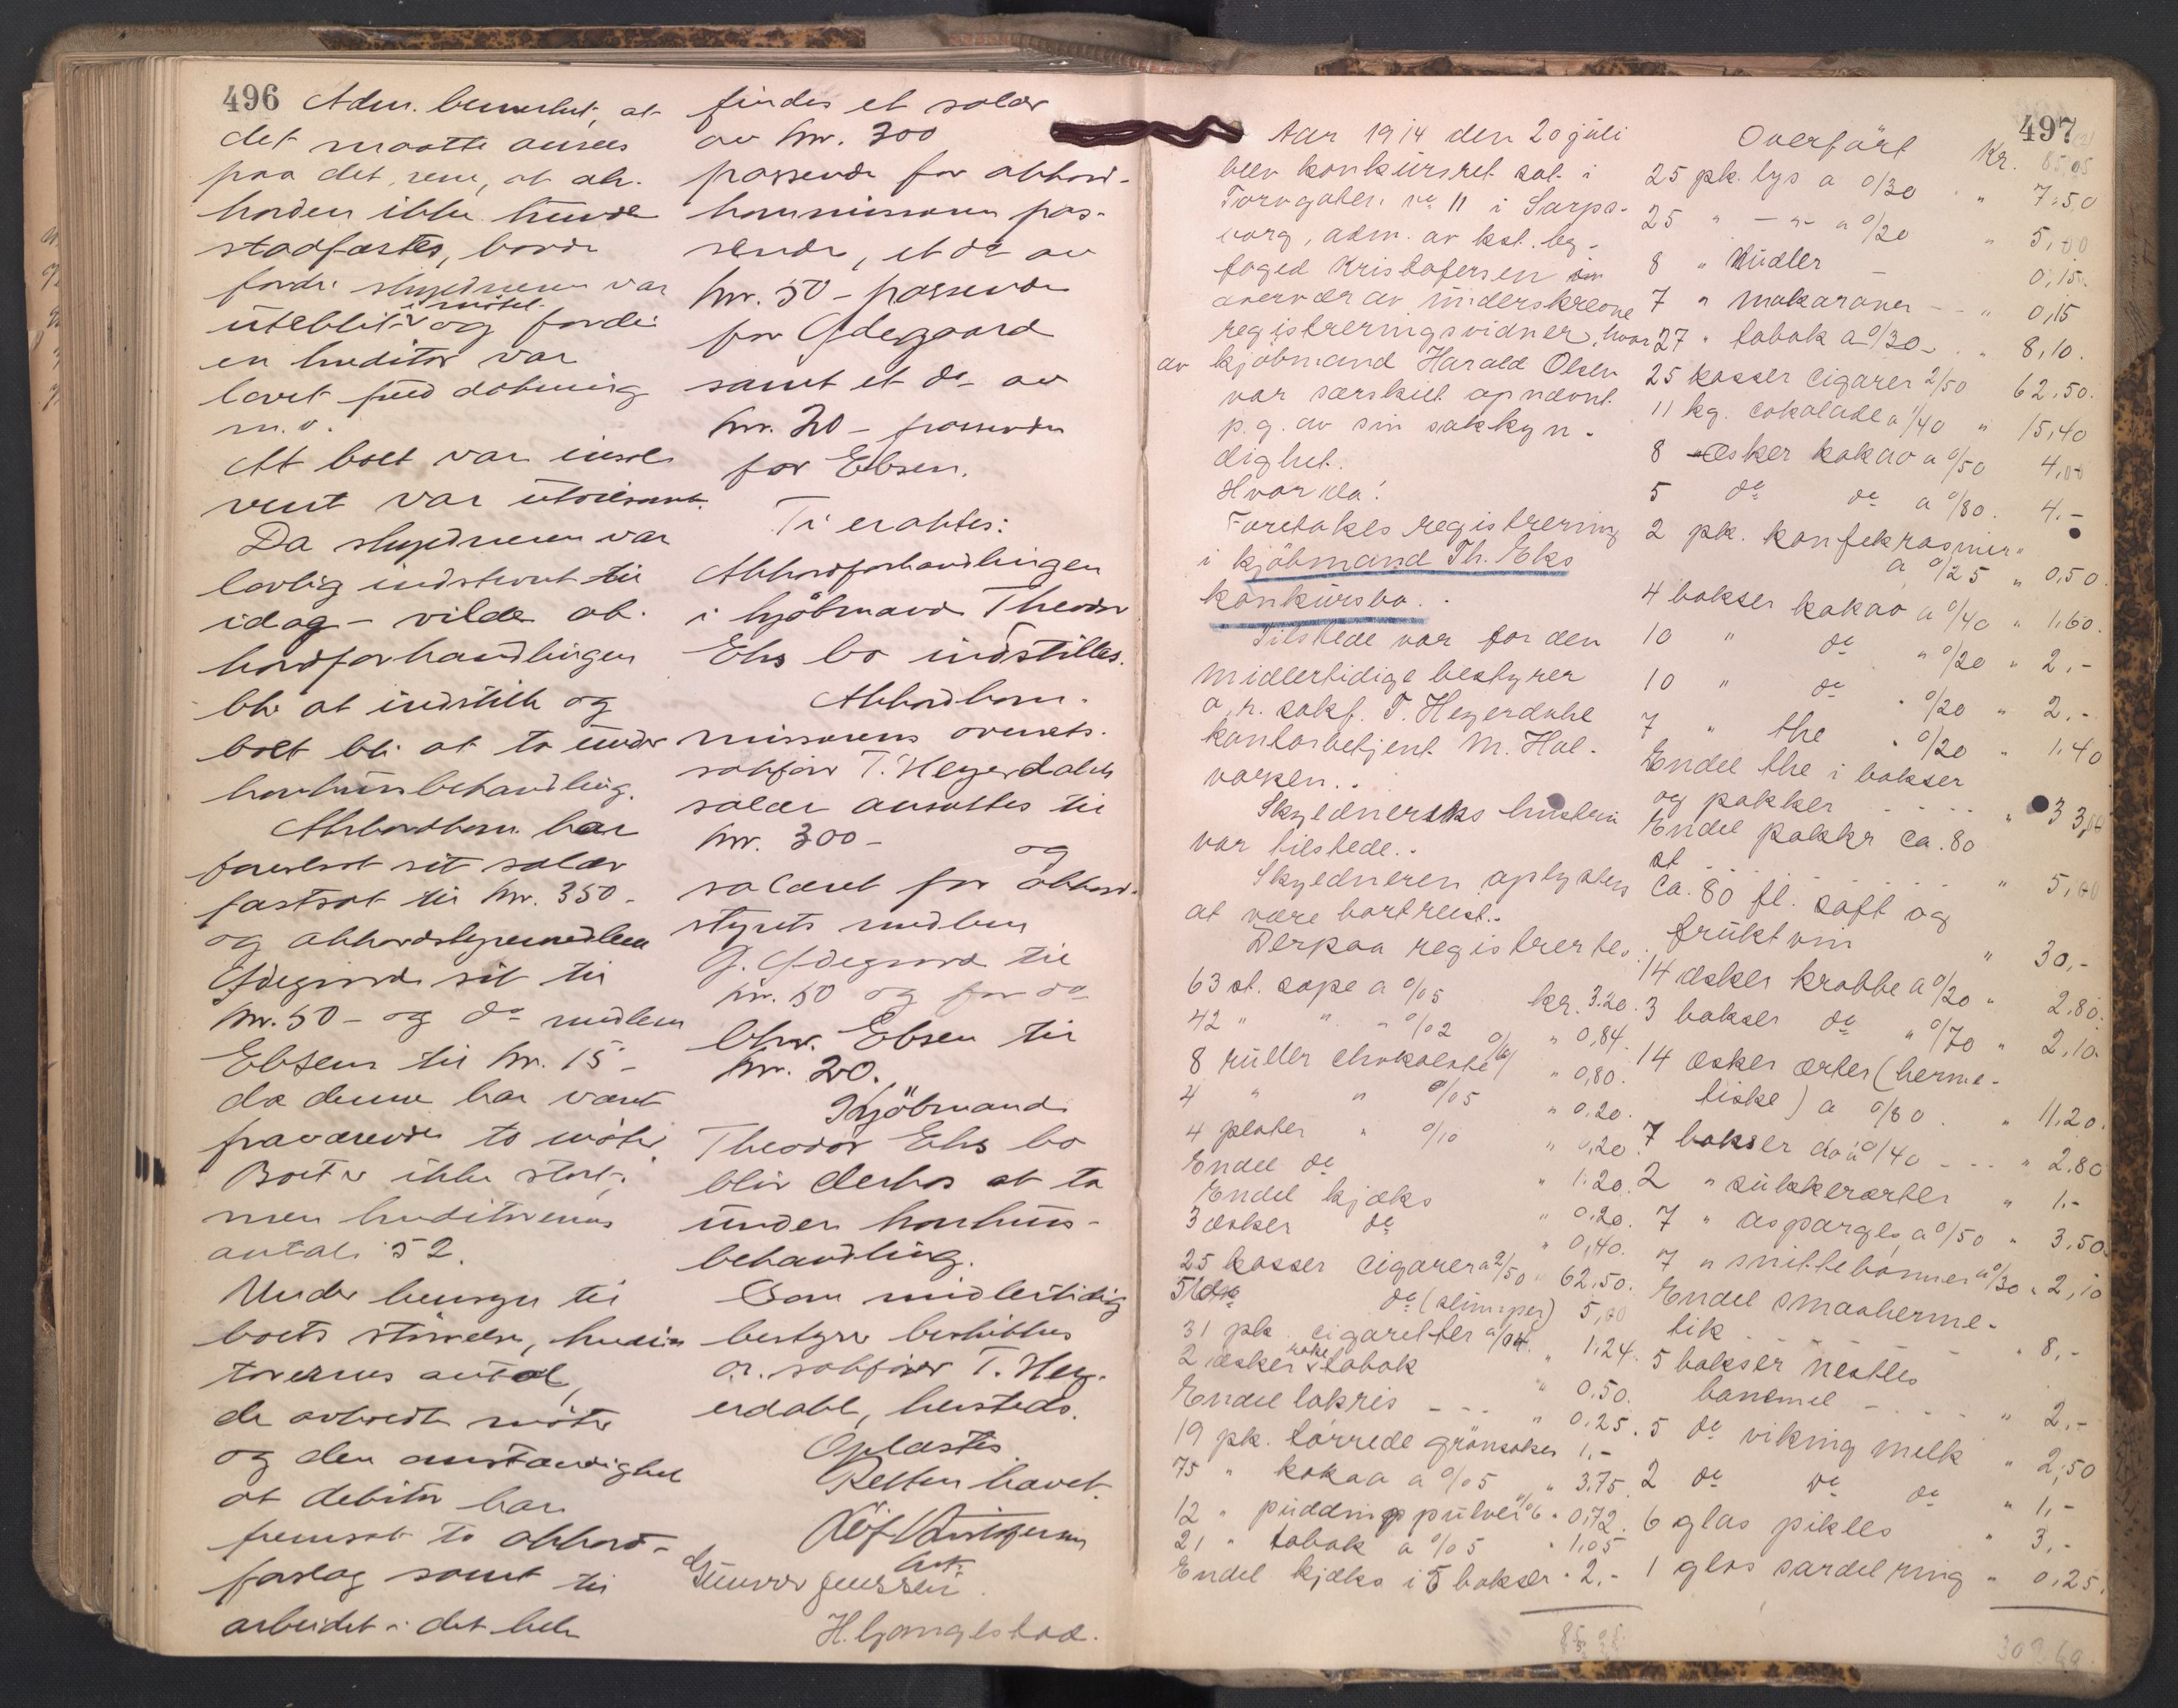 496
Adm. bemerket, at
det maatte ansees
paa det rene, at ak-
korden ikke kunde
stadfæstes, baade
fordi skyldneren var
uteblit i mötet og fordi
en kreditor var
lovet fuld dækning
m.v.
At boet var insol-
vent var utvilsomt.
Da skyldneren var
lovlig indstevnt til
idag – vilde ak-
kordforhandlingen
bli at indstille og
boet bli at ta under
konkursbehandling.
Akkordkom. har
forlangt sit salær
fastsat til kr. 350 -
og akkordstyremedlem
Ödegaard sit til
kr. 50 – og do medlem
Ebsen til kr. 15 –
da denne har været
fraværende to möter.
Boet er ikke stort,
men kreditorernes
antal: 52.
Under hensyn til
boets störrelse, kredi-
torernes antal,
de avholdte möter
og den omstændighet
at debitor har
fremsat to akkord-
forslag samt til
arbeidet i det hele
findes et salær
av kr. 300
passende for akkord-
kommissæren pas-
sende, et do av
kr. 50 – passende
for Ödegaard
samt et do av
kr. 20 – passende
for Ebsen.
Ti eraktes:
Akkordforhandlingen
i kjöbmand Theodor
Eks bo indstilles.
Akkordkom-
missærens overrets-
sakförer T. Heyerdahls
salær ansættes til
kr. 300 –
og
salæret for akkord-
styrets medlem
J. Ödegaard til
kr. 50 og for do
Chr. Ebsen til
kr. 20.
Kjöbmand
Theodor Eks bo
blir derhos at ta
under konkurs-
behandling.
Som midlertidig
bestyrer beskikkes
o.r. sakförer T. Hey-
erdahl, hersteds.
Oplæstes
Retten hævet.
Kristofersen
kst.
Gunvor Jenssen
H. Gangestad.
497
Aar 1914 den 20 juli
blev konkursret sat i
Torvgaten no 11 i Sarps-
borg, adm. av kst. by-
foged Kristofersen
overvær av underskrevne
registreringsvidner, hvor
av kjöbmand Harald Olsen
var særskilt opnævnt
p.g. av sin sakkyn-
dighet.
Hvorda:
Foretokes registrering
i kjöbmand Th. Eks
konkursbo.
Tilstede var for den
midlertidige bestyrer
o.r. sakf. T. Heyerdahl
kontorbetjent M. Hal-
vorsen.
Skyldnerens hustru
var tilstede.
Skyldneren oplystes
at være bortreist.
Derpaa registrertes:
63 st. sæpe a 0/05 kr. 3.20.
42 " " " 0/02 " 0,84.
8 ruller chokolade 0/10 " 0,80.
4 " " 0/05 " 0.20.
4 plater " 0/10 " 0,20.
Endel do " 1.20.
Endel kjæks " 0.20.
3 æsker do " 0,40.
25 kasser cigarer a 2/50 " 62.50.
do (slumper) 5,00
31 pk. cigaretter a 0/04. " 1,24.
2 æsker röke tobak " 0.50.
Endel lakris - - - " 0.25.
19 pk. törrede grönsaker 1,-
75 " kakao a 0/05 " 3.75.
12 " puddingpulver 0/06 " 0,72.
21 " tobak a 0/05 " 1,05
Endel kjæks i 5 bokser " 2.-
Overfört Kr. 85,05
25 pk. lys a 0/30 " 7,50
25 " - " - a 0/20 " 5,00
8 " nudler - 0,15.
7 " makaroner - - " 0,15
27 " tobak a 0/30 - " 8,10.
25 kasser cigarer 2/50 62,50.
11 kg. cokolade a 1/40 " 15,40
8 æsker kakao a 0/50 4,00
5 do do a 0/80. 4.-
2 pk. konfektrosiner
a 0/25 " 0,50.
4 bokser kakao a 0/40 " 1,60.
10 " do " 0/20 " 2.-
10 " do " 0/20 " 2.-
7 " the " 0/20 " 1,40
Endel the i bokser
og pakker - - - - " 3
Endel pakker ca. 80
st - - - " 5,00
Ca. 80 fl. saft og
fruktvin " 30,-
14 æsker krabbe a 0/20 " 2,80.
3 bokser do " 0/70 " 2,10.
14 æsker erter (herme-
tiske) a 0/80 . " 11,20.
7 bokser do a 0/40 - - - " 2.80
2 " sukkererter " 1.-
7 " asparges a 0/50 " 3,50.
7 " snittebönner a 0/30 " 2,10
Endel smaaherme-
tik - - - - " 8,-
5 bokser Nestles
barnemel - - - - " 2,-
5 do viking melk " 2,50
2 do do do " 1,-
6 glas pikles " 3,-
1 glas sardelring " 0,25.